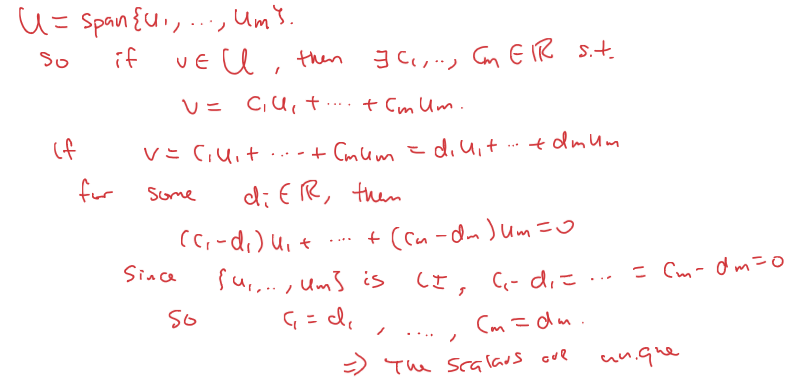 U = span{u₁, ..., uₘ}.
so if v ∈ U, then ∃ c₁, .., cₘ ∈ ℝ s.t.
v = c₁u₁ + .... + cₘuₘ.
if v = c₁u₁ + ... + cₘuₘ = d₁u₁ + ... + dₘuₘ
for some dᵢ ∈ ℝ, then
(c₁-d₁)u₁ + .... + (cₘ-dₘ)uₘ = 0
Since {u₁, .., uₘ} is LI, c₁-d₁ = ... = cₘ-dₘ = 0
So c₁ = d₁, ...., cₘ = dₘ.
⇒ The scalars are unique